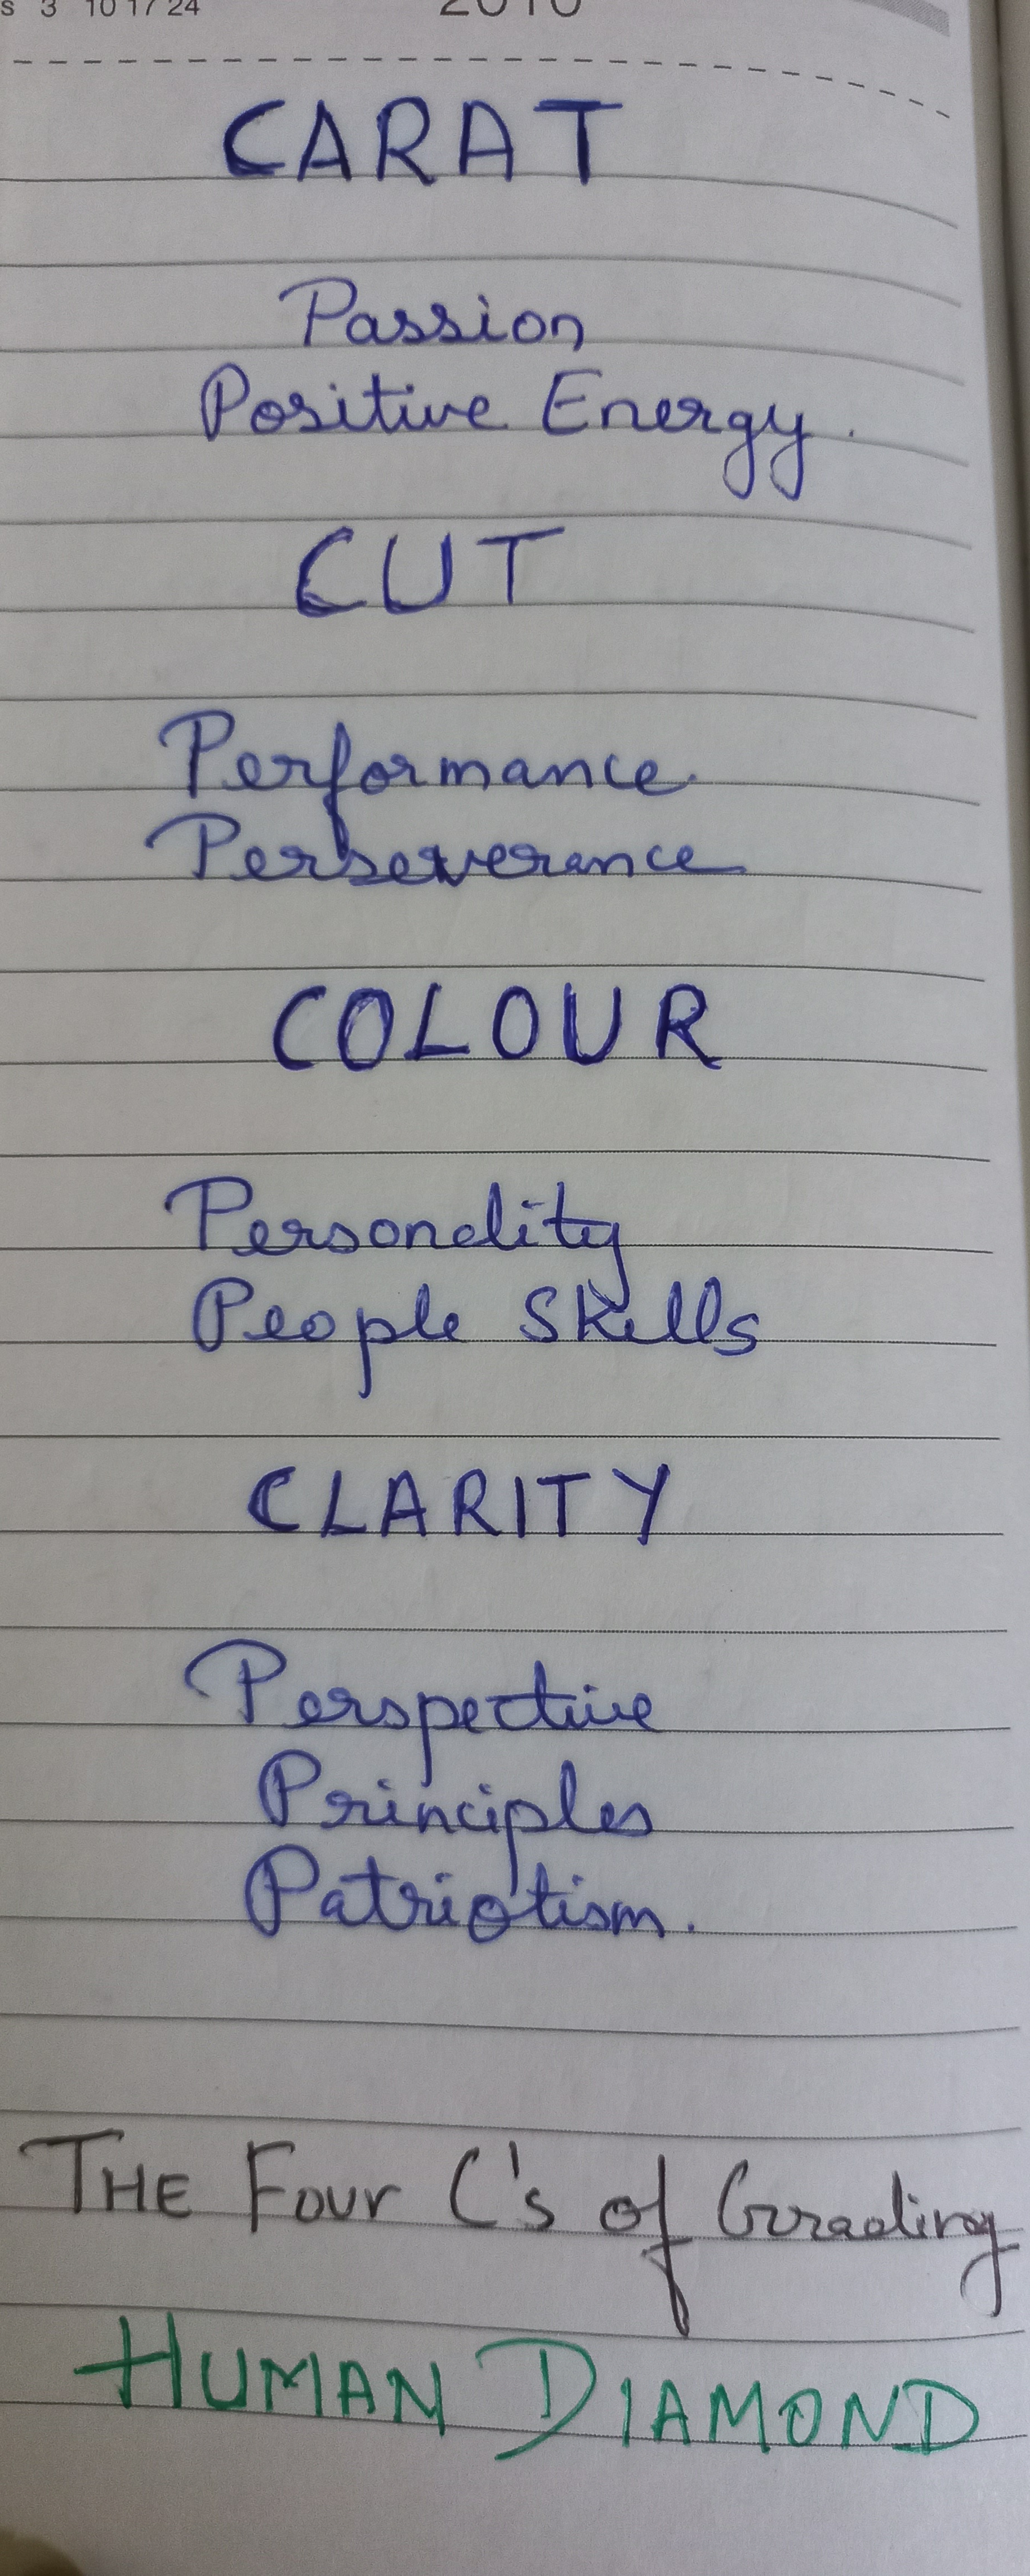 s 3 10 17 24
CARAT
Passion
Positive Energy.
CUT
Performance.
Perseverance
COLOUR
Personality
People Skills
CLARITY
Perspective
Principles
Patriotism.
THE FOUR C's of Grading
HUMAN DIAMOND